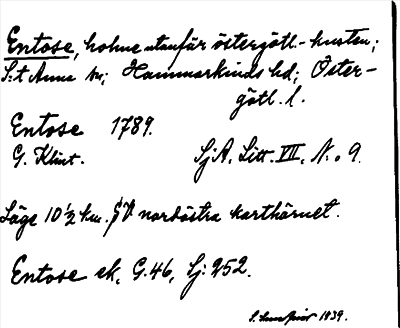 Entose, holme utanför östergötl. kusten;
S:t Anna sn; Hammarkinds hd; Öster-
götl. l.
Entose 1789.
G. Klint. SjA. Litt. VII. N.o 9.
Läge 10 1/2 km. SV nordöstra karthörnet.
Entose ek, G. 46, Sj: 252.
1939.